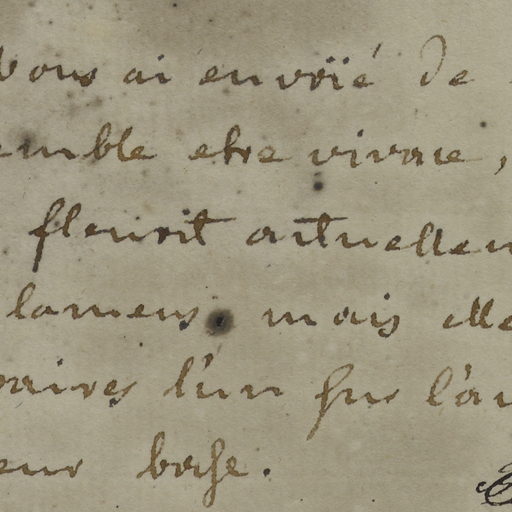 vous ai envoïé de
emble etre vivace,
fleurit actuellem
lamens, mais elle
paires l'un sur l'au
eur base.